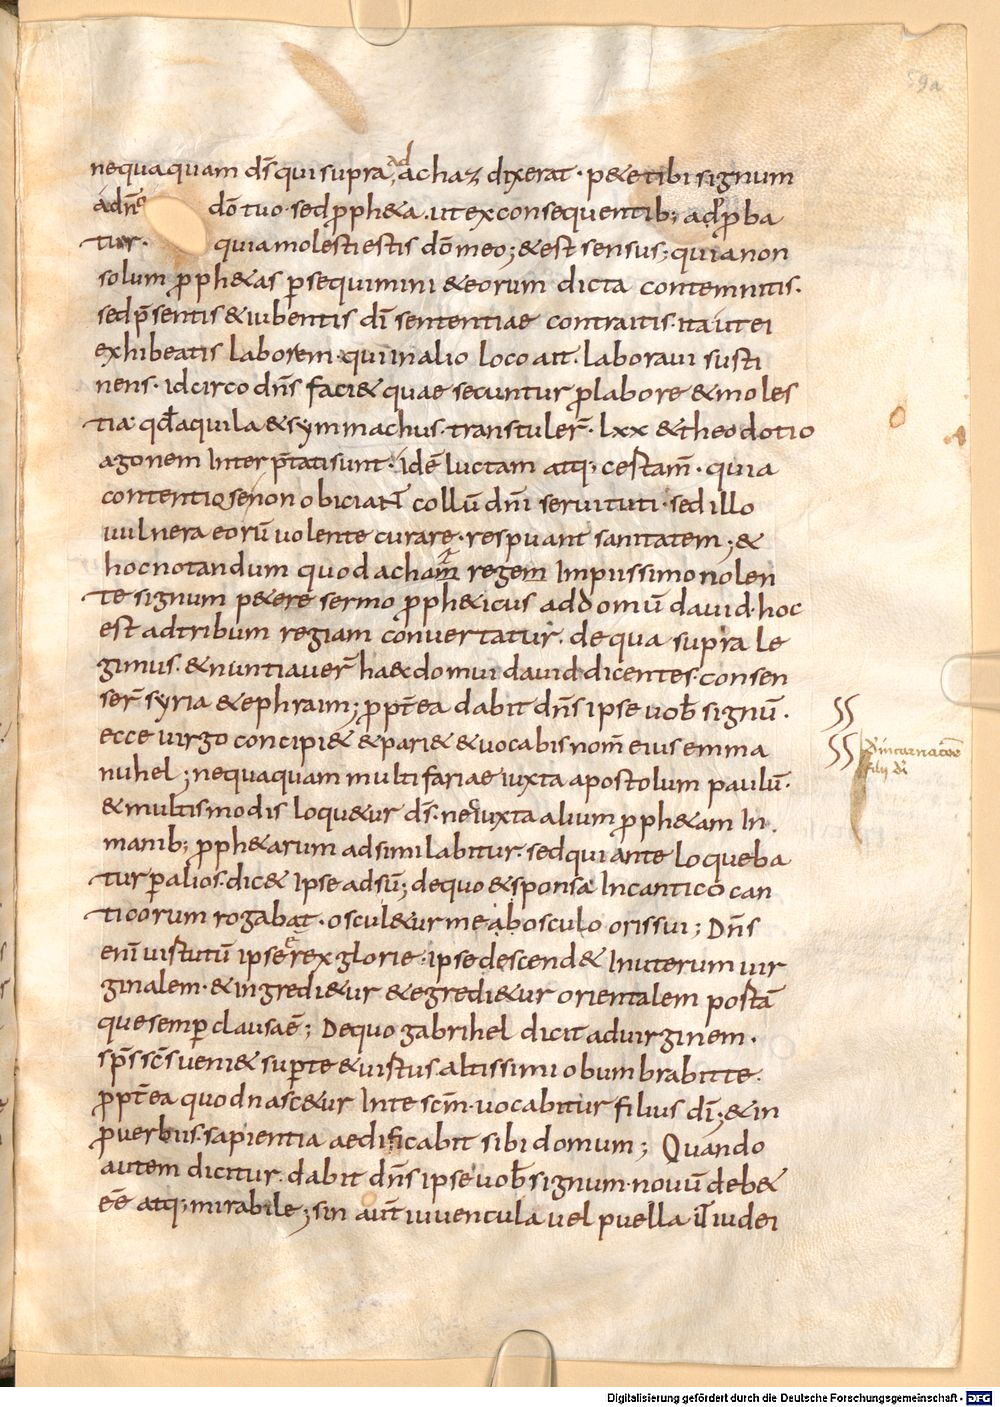 59a
nequaquam dn̄s qui supra ad achaz dixerat · p&e tibi signum
a dn̄o dō tuo · sed ꝓph&a · ut ex consequentib; adꝓba
tur · quia molesti estis dō meo; & est sensus; quia non
solum ꝓph&as ꝑsequimini & eorum dicta contemnitis ·
sed p̄sentis & iubentis dī sententiae contraitis · ita ut ei
exhibeatis laborem · qui in alio loco ait · laboravi susti
nens · idcirco dn̄s faci& quae secuntur ꝓ labore & moles
tia · qđ aquila & symmachus · transtuler̄ · lxx & theodotio
agonem Interp̄tati sunt · idē luctam atq; certam̄ · quia
contentiose non obiciant collū dn̄i servituti · sed illo
vulnera eorū volente curare · respuant sanitatem; &
hoc notandum quod acham regem Impiissimo nolen
te signum p&ere sermo ꝓph&icus ad domū david · hoc
est ad tribum regiam convertatur · de qua supra le
gimus · & nuntiaver̄ haec domui david dicentes · consen
ser̄ syria & ephraim; ꝓpt̄ea dabit dn̄s ipse vob̄ signū ·
ecce virgo concipi& & pari& & vocabis nom̄ eius emma
nuhel; nequaquam multifariae iuxta apostolum paulū ·
& multis modis loqu&ur ds̄ · nec iuxta alium ꝓph&am In
manib; ꝓph&arum adsimilabitur · sed qui ante loqueba
tur ꝑ alios · dic& Ipse adsū; de quo & sponsa In cantico can
ticorum rogabat · oscul&ur me ab osculo oris sui; Dn̄s
enī virtutū ipse ē rex glorie · ipse descend& In uterum vir
ginalem · & ingredi&ur & egredi&ur orientalem portā
que semper clausa ē; De quo gabrihel dicit ad virginem ·
sp̄s sc̄s veni& super te & virtus altissimi obumbrabit te ·
ꝓpt̄ea quod nasc&ur In te sc̄m · vocabitur filius dī; & in
ꝓverbiis · sapientia aedificabit sibi domum; Quando
autem dicitur · dabit dn̄s ipse vob̄ signum · novū deb&
ēē atq; mirabile; sin aut̄ iuvencula vel puella ut iudei
incarnatōe
filij dī
Digitalisierung gefördert durch die Deutsche Forschungsgemeinschaft - DFG